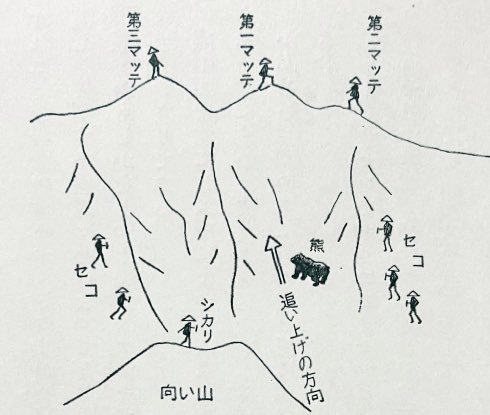 第三マッテ
第一マッテ
第二マッテ
セコ
シカリ
熊
追い上げの方向
セコ
向い山